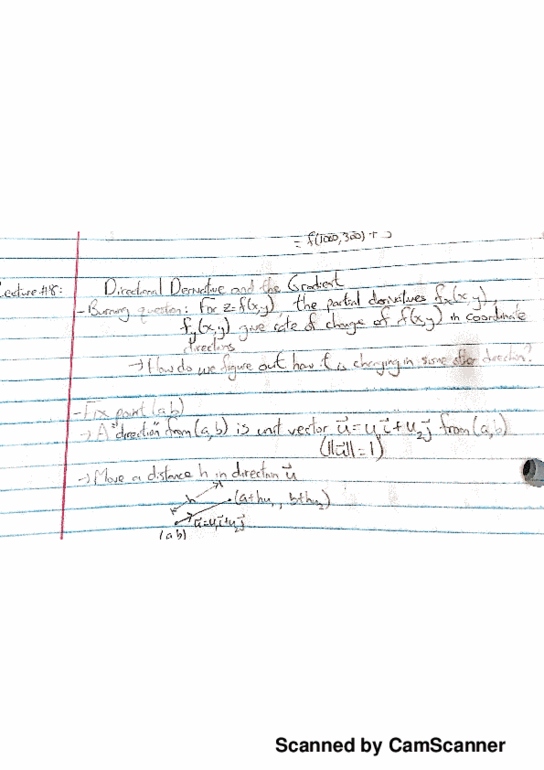 = f(1000,300) +
Lecture #8: Directional Derivative and the Gradient
- Burning question: For z=f(x,y), the partial derivatives fx(x,y),
fy(x,y) give rate of change of f(x,y) in coordinate
directions
→ How do we figure out how f is changing in some other direction?
- Fix point (a,b)
→ A "direction" from (a,b) is unit vector u⃗ = u₁i⃗ + u₂j⃗ from (a,b)
(||u⃗||=1)
→ Move a distance h in direction u⃗
h (a+hu₁, b+hu₂)
u⃗=u₁i⃗+u₂j⃗
(a,b)
Scanned by CamScanner